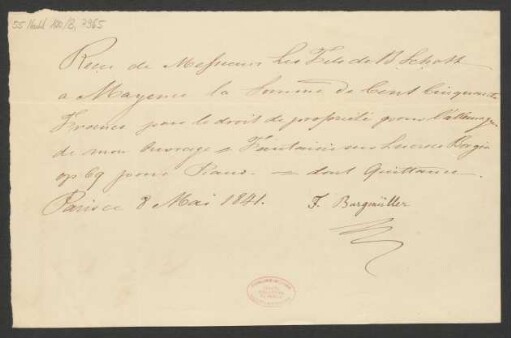 55 Nachl 100/B, 7965
Reçu de Messieurs Les Fils de B Schott
a Mayence la Somme de Cent Cinquante
Francs pour le droit de propriété pour l'allemagne
de mon Ouvrage Fantaisie sur Lucrece Borgia
op 69 pour Piano. — dont Quittance.
Paris ce 8 Mai 1841. F. Burgmüller